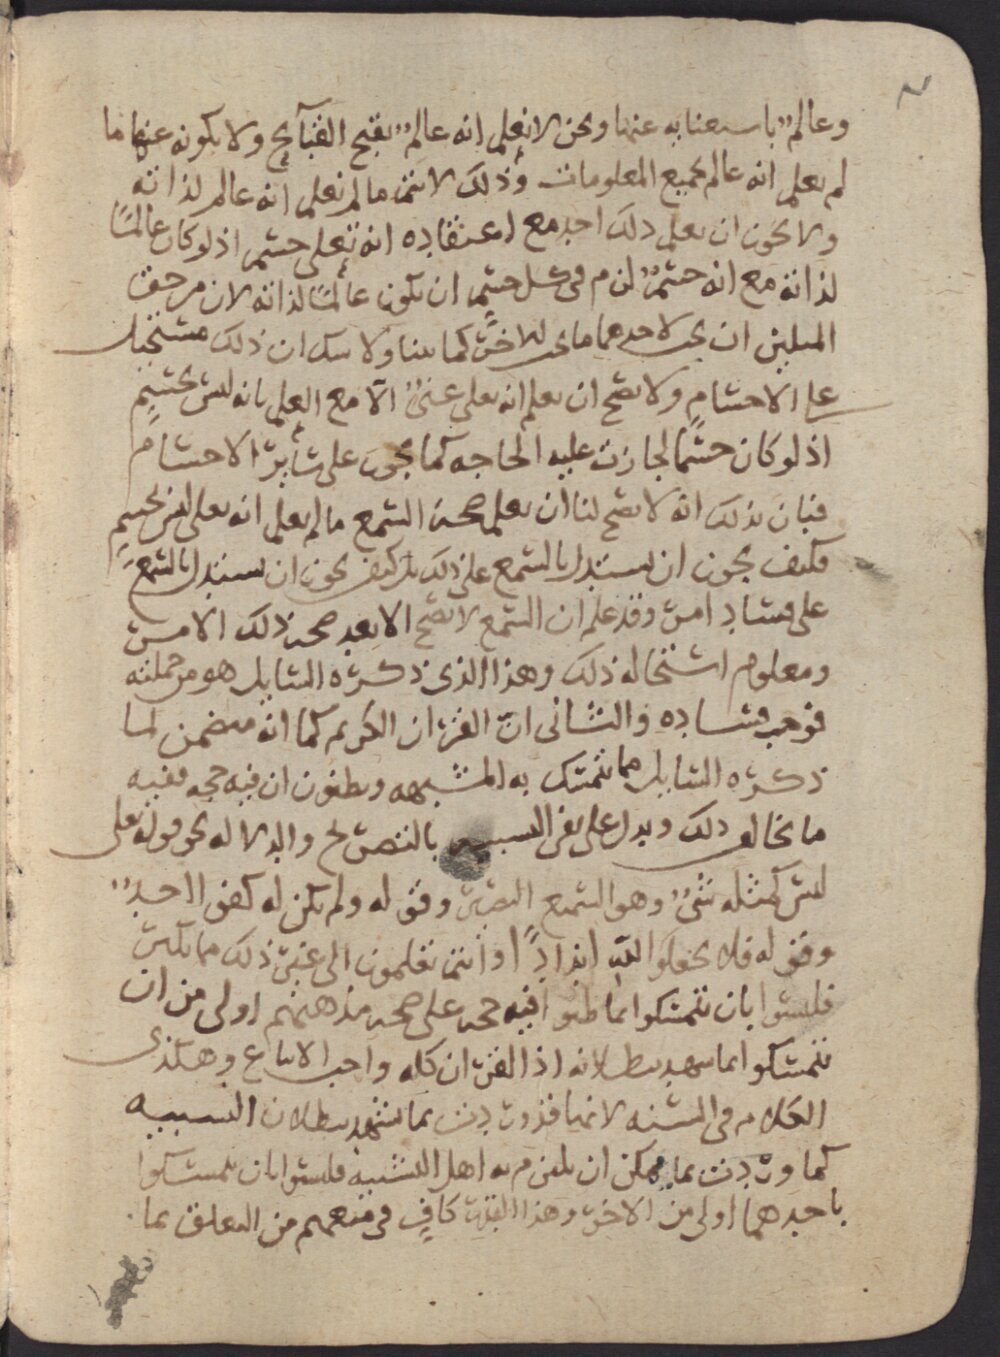 وعالم باستغنائه عنها ونحن لا نعلم انه عالم بقبح القبآئح ولا بكونه عنها ما
لم نعلم انه عالم بجميع المعلومات وذلك لا يتم ما لم نعلم انه عالم لذاته
ولا يجوز ان يعلم ذلك احد مع اعتقاده انه تعلى جسم اذ لو كان عالما
لذاته مع انه جسم لزم في كل جسم ان يكون عالما لذاته لان من حق
المثلين ان يجب لاحدهما ما يجب للاخر كما بينا ولا شك ان ذلك مستحيل
على الاجسام ولا يصح ان يعلم انه تعلى غني الا مع العلم بانه ليس بجسم
اذ لو كان جسما لجازت عليه الحاجه كما تجوز على سآير الاجسام
فبان بذلك انه لا يصح لنا ان نعلم صحة السمع ما لم نعلم انه تعلى ليس بجسم
فكيف يجوز ان يستدل بالسمع على ذلك بل كيف يجوز ان يستدل بالسمع
على فساد امر وقد علم ان السمع لا يصح الا بعد صحة ذلك الامر
ومعلوم استحالة ذلك وهذا الذي ذكره السايل هو من جملته
فوجب فساده والثاني ان القران الكريم كما انه متضمن لما
ذكره السايل مما يتمسك به المشبهه ويظنون ان فيه حجه ففيه
ما يخالف ذلك ويدل على نفي التشبيه بالتصريح والدلاله نحو قوله تعلى
ليس كمثله شي وهو السميع البصير وقوله ولم يكن له كفوا احد
وقوله فلا تجعلوا لله اندادا وانتم تعلمون الى غير ذلك مما يكثر
فليسوا بان يتمسكوا بما ظنوا فيه حجه على صحة مذهبهم اولى من ان
يتمسكوا بما يشهد ببطلانه اذ القران كله واجب الاتباع وهكذى
الكلام في السنه لانها قد وردت بما يشهد ببطلان التشبيه
كما وردت بما يمكن ان يلتزم به اهل التشبيه فليسوا بان يتمسكوا
باحدهما اولى من الاخر وهذا القدر كاف في منعهم من التعلق بما